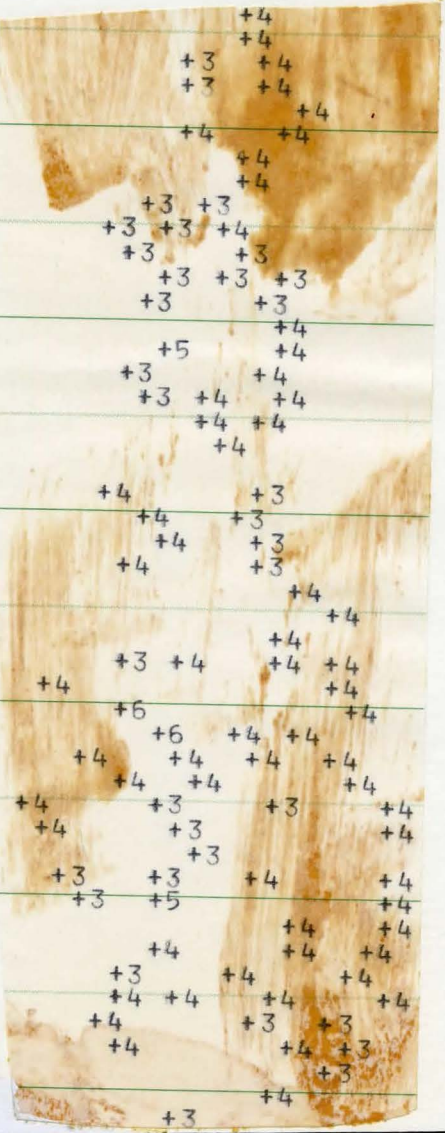 +4
+4
+3 +4
+3 +4
+4
+4 +4
+4
+4
+3 +3
+3 +3 +4
+3 +3
+3 +3 +3
+3 +3
+4
+5 +4
+3 +4
+3 +4 +4
+4 +4
+4
+4 +3
+4 +3
+4 +3
+4 +3
+4
+4
+4
+3 +4 +4 +4
+4 +4
+6 +4
+6 +4 +4
+4 +4 +4 +4
+4 +4 +4
+4 +3 +3 +4
+4 +3 +4
+3
+3 +3 +4 +4
+3 +5 +4
+4 +4
+4 +4 +4
+3 +4 +4
+4 +4 +4 +4
+4 +3 +3
+4 +4 +3
+3
+4
+3